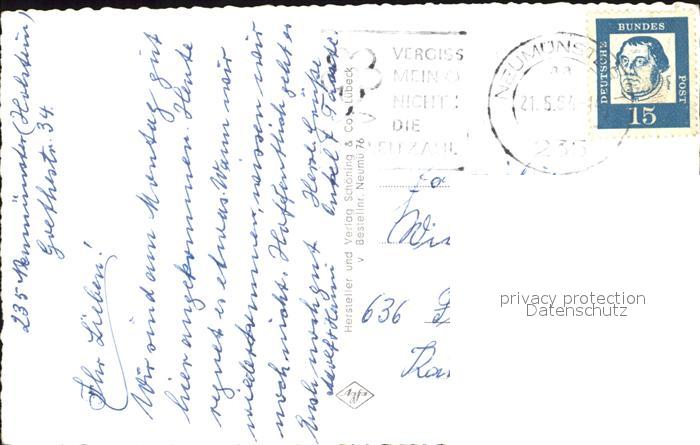 235 Neumünster (Holstein)
Goethestr. 34.
Ihr Lieben!
Wir sind am Montag gut
hier angekommen. Heute
regnet es etwas. Wann wir
wiederkommen, wissen wir
noch nicht. Hoffentlich geht es
Euch noch gut. Herzl. Grüße
Onkel + Tante
Hersteller und Verlag Schöning & Co., Lübeck
Bestellnr. Neumü 76
VERGISS
MEIN
NICHT
DIE
NEUMÜNST
21.5.64
235
DEUTSCHE BUNDES POST
15
636
privacy protection
Datenschutz